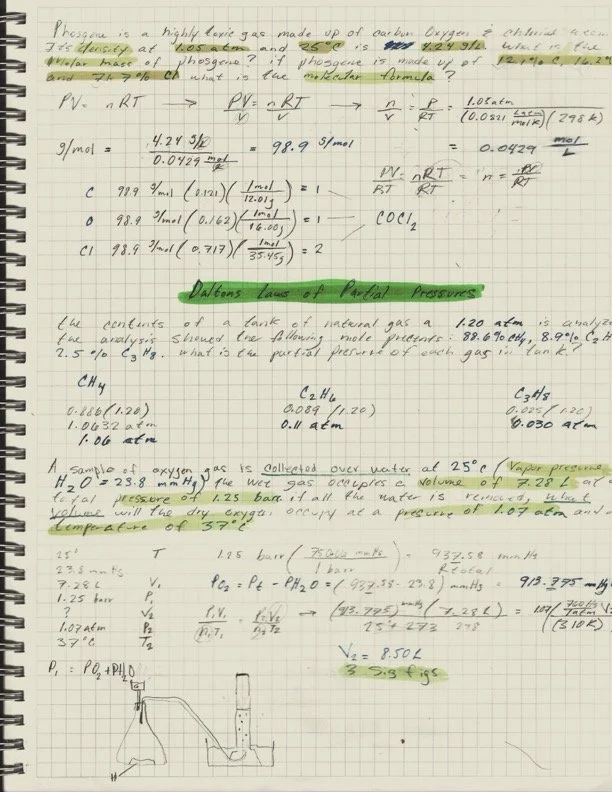 Phosgene is a highly toxic gas made up of carbon Oxygen & chlorine
Its density at 1.05 atm and 25°C is 4.24 g/L. What is the
molar mass of phosgene? if phosgene is made up of 12.1% C, 16.2%
and 71.7% Cl what is the molecular formula?
PV = nRT → PV/V = nRT/V → n/V = P/RT = 1.05 atm / (0.0821 L·atm/mol·K)(298 K)
g/mol = 4.24 g/L / 0.0429 mol/L = 98.9 g/mol = 0.0429 mol/L
PV/RT = nRT/RT = n = PV/RT
C 98.9 g/mol (0.121)(1mol/12.01g) = 1
O 98.9 g/mol (0.162)(1mol/16.00g) = 1 COCl2
Cl 98.9 g/mol (0.717)(1mol/35.45g) = 2
Daltons Laws of Partial Pressures
the contents of a tank of natural gas a 1.20 atm is
the analysis showed the following mole precents: 88.6% CH4, 8.9% C2H
2.5% C3H8. what is the partial pressure of each gas in tank?
CH4 C2H6 C3H8
0.886(1.20) 0.089 (1.20) 0.025(1.20)
1.0632 atm 0.11 atm 0.030 atm
1.06 atm
A sample of oxygen gas is collected over water at 25°C (Vapor pressure
H2O = 23.8 mmHg) the wet gas occupies a volume of 7.28 L at a
total pressure of 1.25 barr. if all the water is removed, what
volume will the dry oxygen occupy at a pressure of 1.07 atm and a
temperature of 37°C
25° T 1.25 barr ( mmHg / 1 barr) = 937.58 mmHg
23.8 mmHg
7.28 L V1 PO2 = Pt - PH2O = (937.58 - 23.8) mmHg = 913.775 mmHg
1.25 barr P1
? V2 P1V1/n1T1 = P2V2/n2T2 → (913.775) mmHg (7.28 L) / 25 + 273 298 = 1.07 (760 mmHg/1 atm) V2 / (310 K)
1.07 atm P2
37°C T2
V2 = 8.50 L
3 Sig figs
P1 = PO2 + PH2O